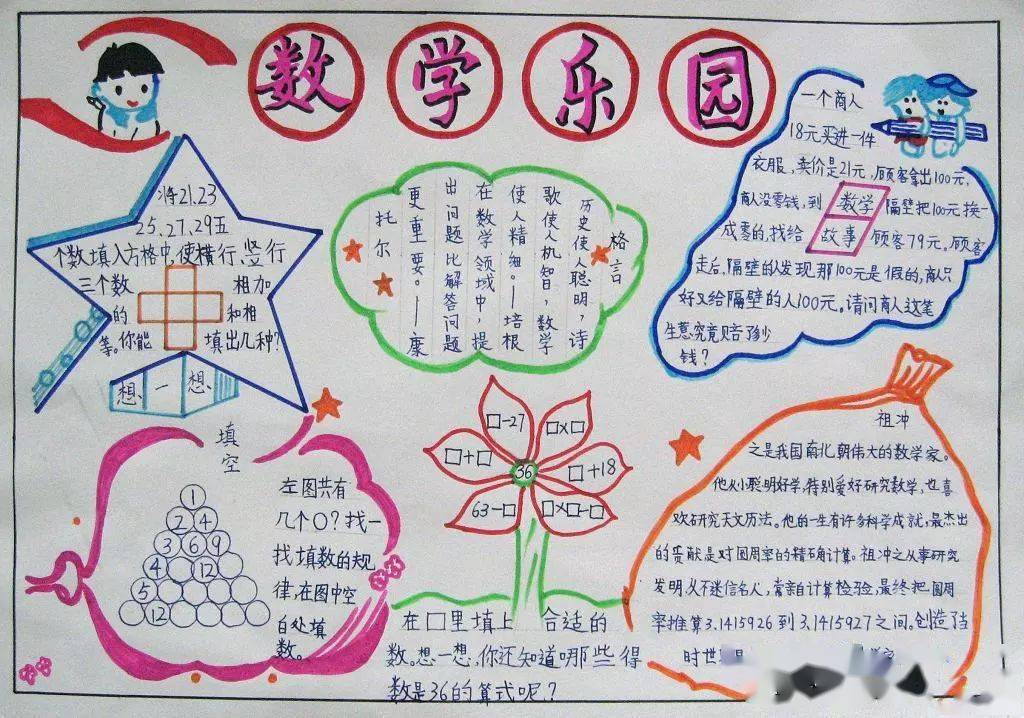 数学乐园
将21.23
25.27.29五
个数填入方格中,使横行、竖行
三个数 相加
的 和相
等。你能 填出几种?
想一想、
格言
历史使人聪明，诗
歌使人机智，数学
使人精细。—培根
在数学领域中，提
出问题比解答问题
更重要。—康
托尔
一个商人
18元买进一件
衣服，卖价是21元，顾客拿出100元，
商人没零钱，到 隔壁把100元换一
数学
故事
成零的,找给 顾客79元，顾客
走后，隔壁的人发现那100元是假的，商人只
好又给隔壁的人100元。请问商人这笔
生意究竟赔了多少
钱？
填空
1
2 4
3 6 9
4 12
5
12
左图共有
几个〇？找一
找填数的规
律,在图中空
白处填
数。
□-27
□×□
□+□
36
□+18
63-□
□×□-□
在□里填上 合适的
数。想一想,你还知道哪些得
数是36的算式呢？
祖冲
之是我国南北朝伟大的数学家。
他从小聪明好学,特别爱好研究数学，也喜
欢研究天文历法。他的一生有许多科学成就,最杰出
的贡献是对圆周率的精确计算。祖冲之从事研究
发明,从不迷信名人，常亲自计算检验,最终把圆周
率推算3.1415926到3.1415927之间。创造了当
时世界